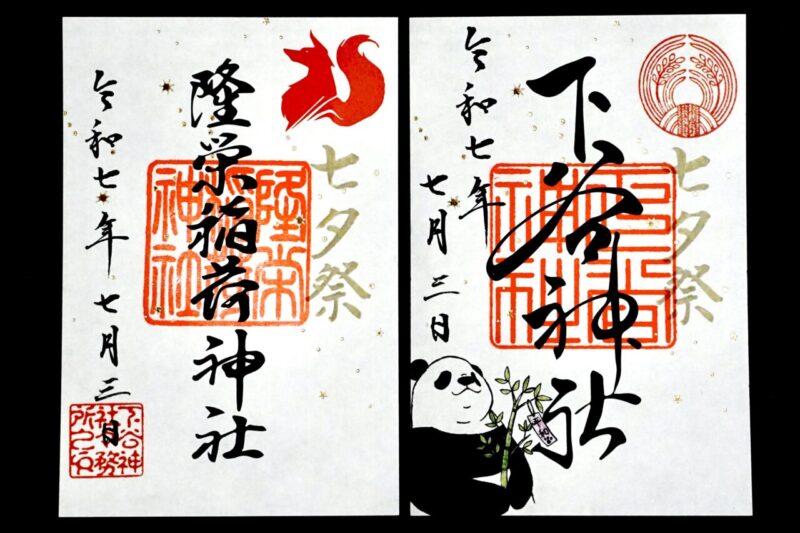 七夕祭
隆栄稲荷神社
隆栄稲荷神社
令和七年 七月三日
下谷神社社務所之印
七夕祭
下谷神社
令和七年
七月三日
平和